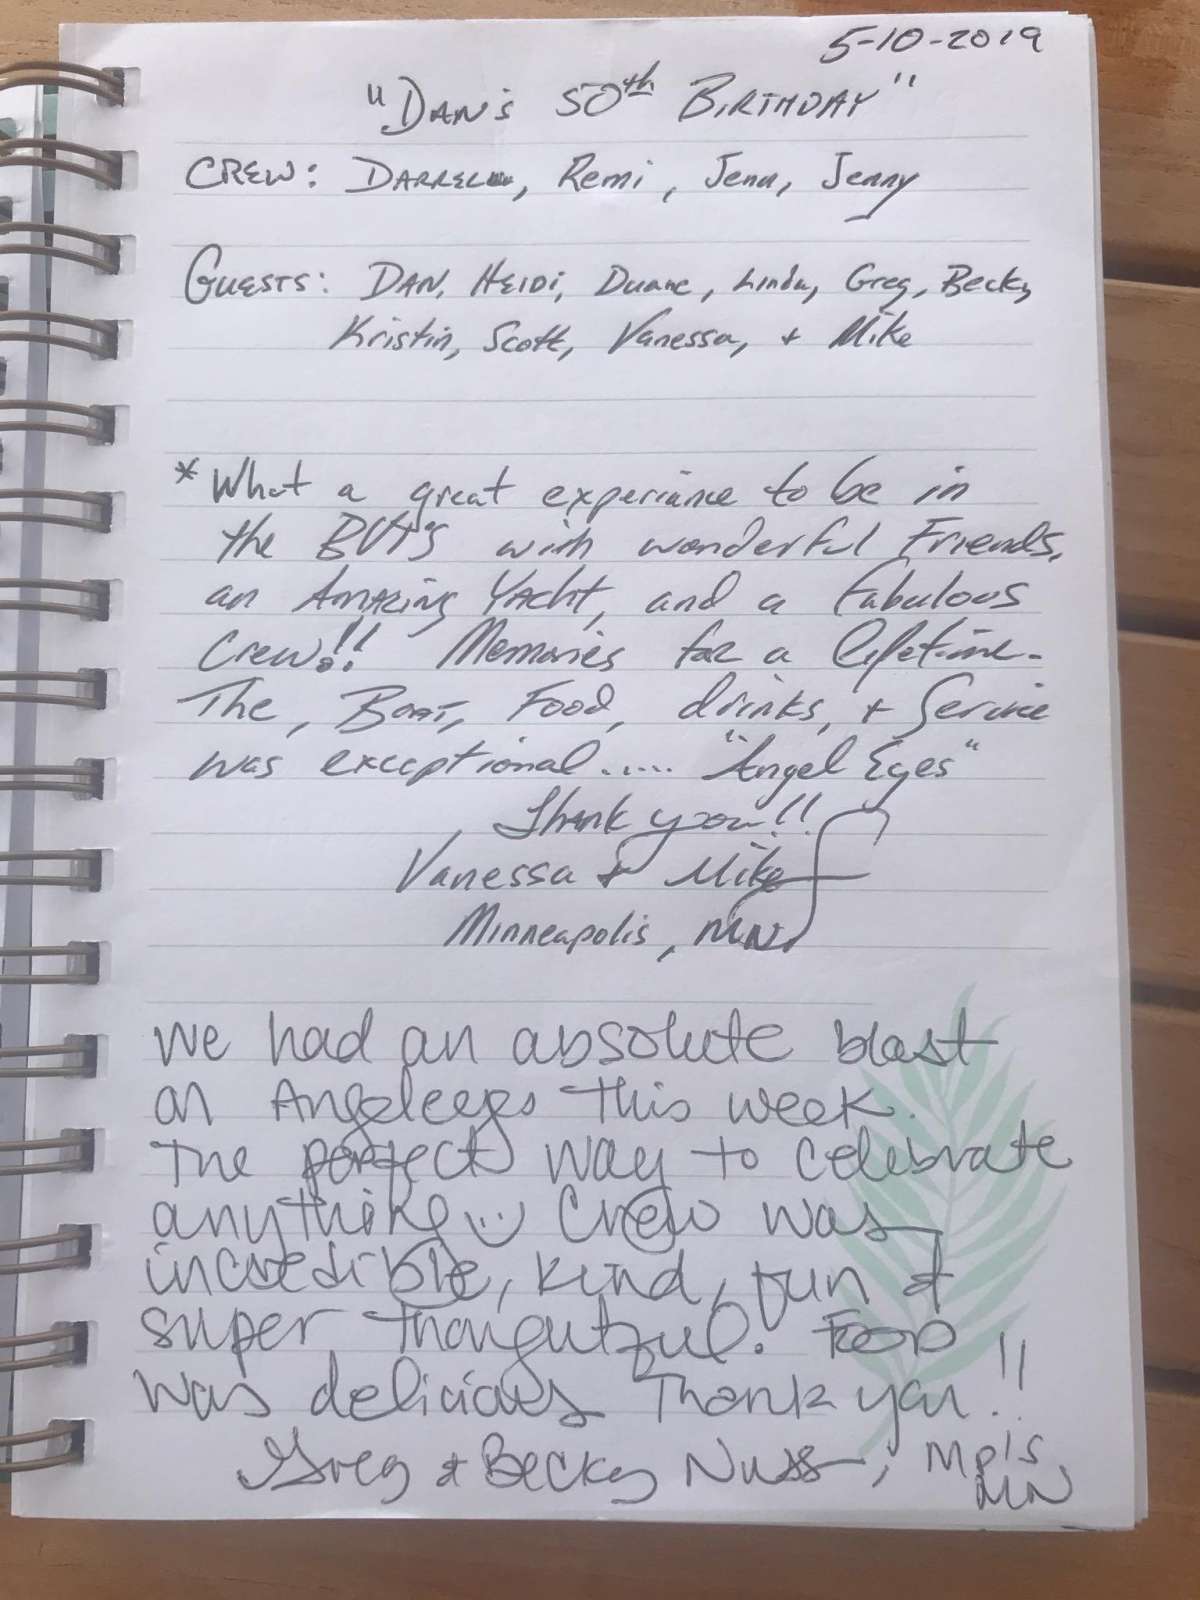 5-10-2019
"DAN's 50th BIRTHDAY"
CREW: DARREL, Remi, Jenn, Jenny
GUESTS: DAN, HEIDI, Duane, Linda, Greg, Becky,
Kristin, Scott, Vanessa, + Mike
*What a great experiance to be in
the BVI's with wonderful Friends,
an AMAZing YAcht, and a Fabulous
Crew!! Memories for a lifetime.
The, Boat, Food, drinks, + Service
was exceptional..... "Angel Eyes"
Thank you!!
Vanessa & Mike
Minneapolis, MN.
We had an absolute blast
on Angeleeyes this week.
The perfect way to celebrate
anything Crew was
incredible, kind, fun &
super thoughtful. Food
was delicious Thank you!!
Greg & Becky Nuss, Mpls
MN